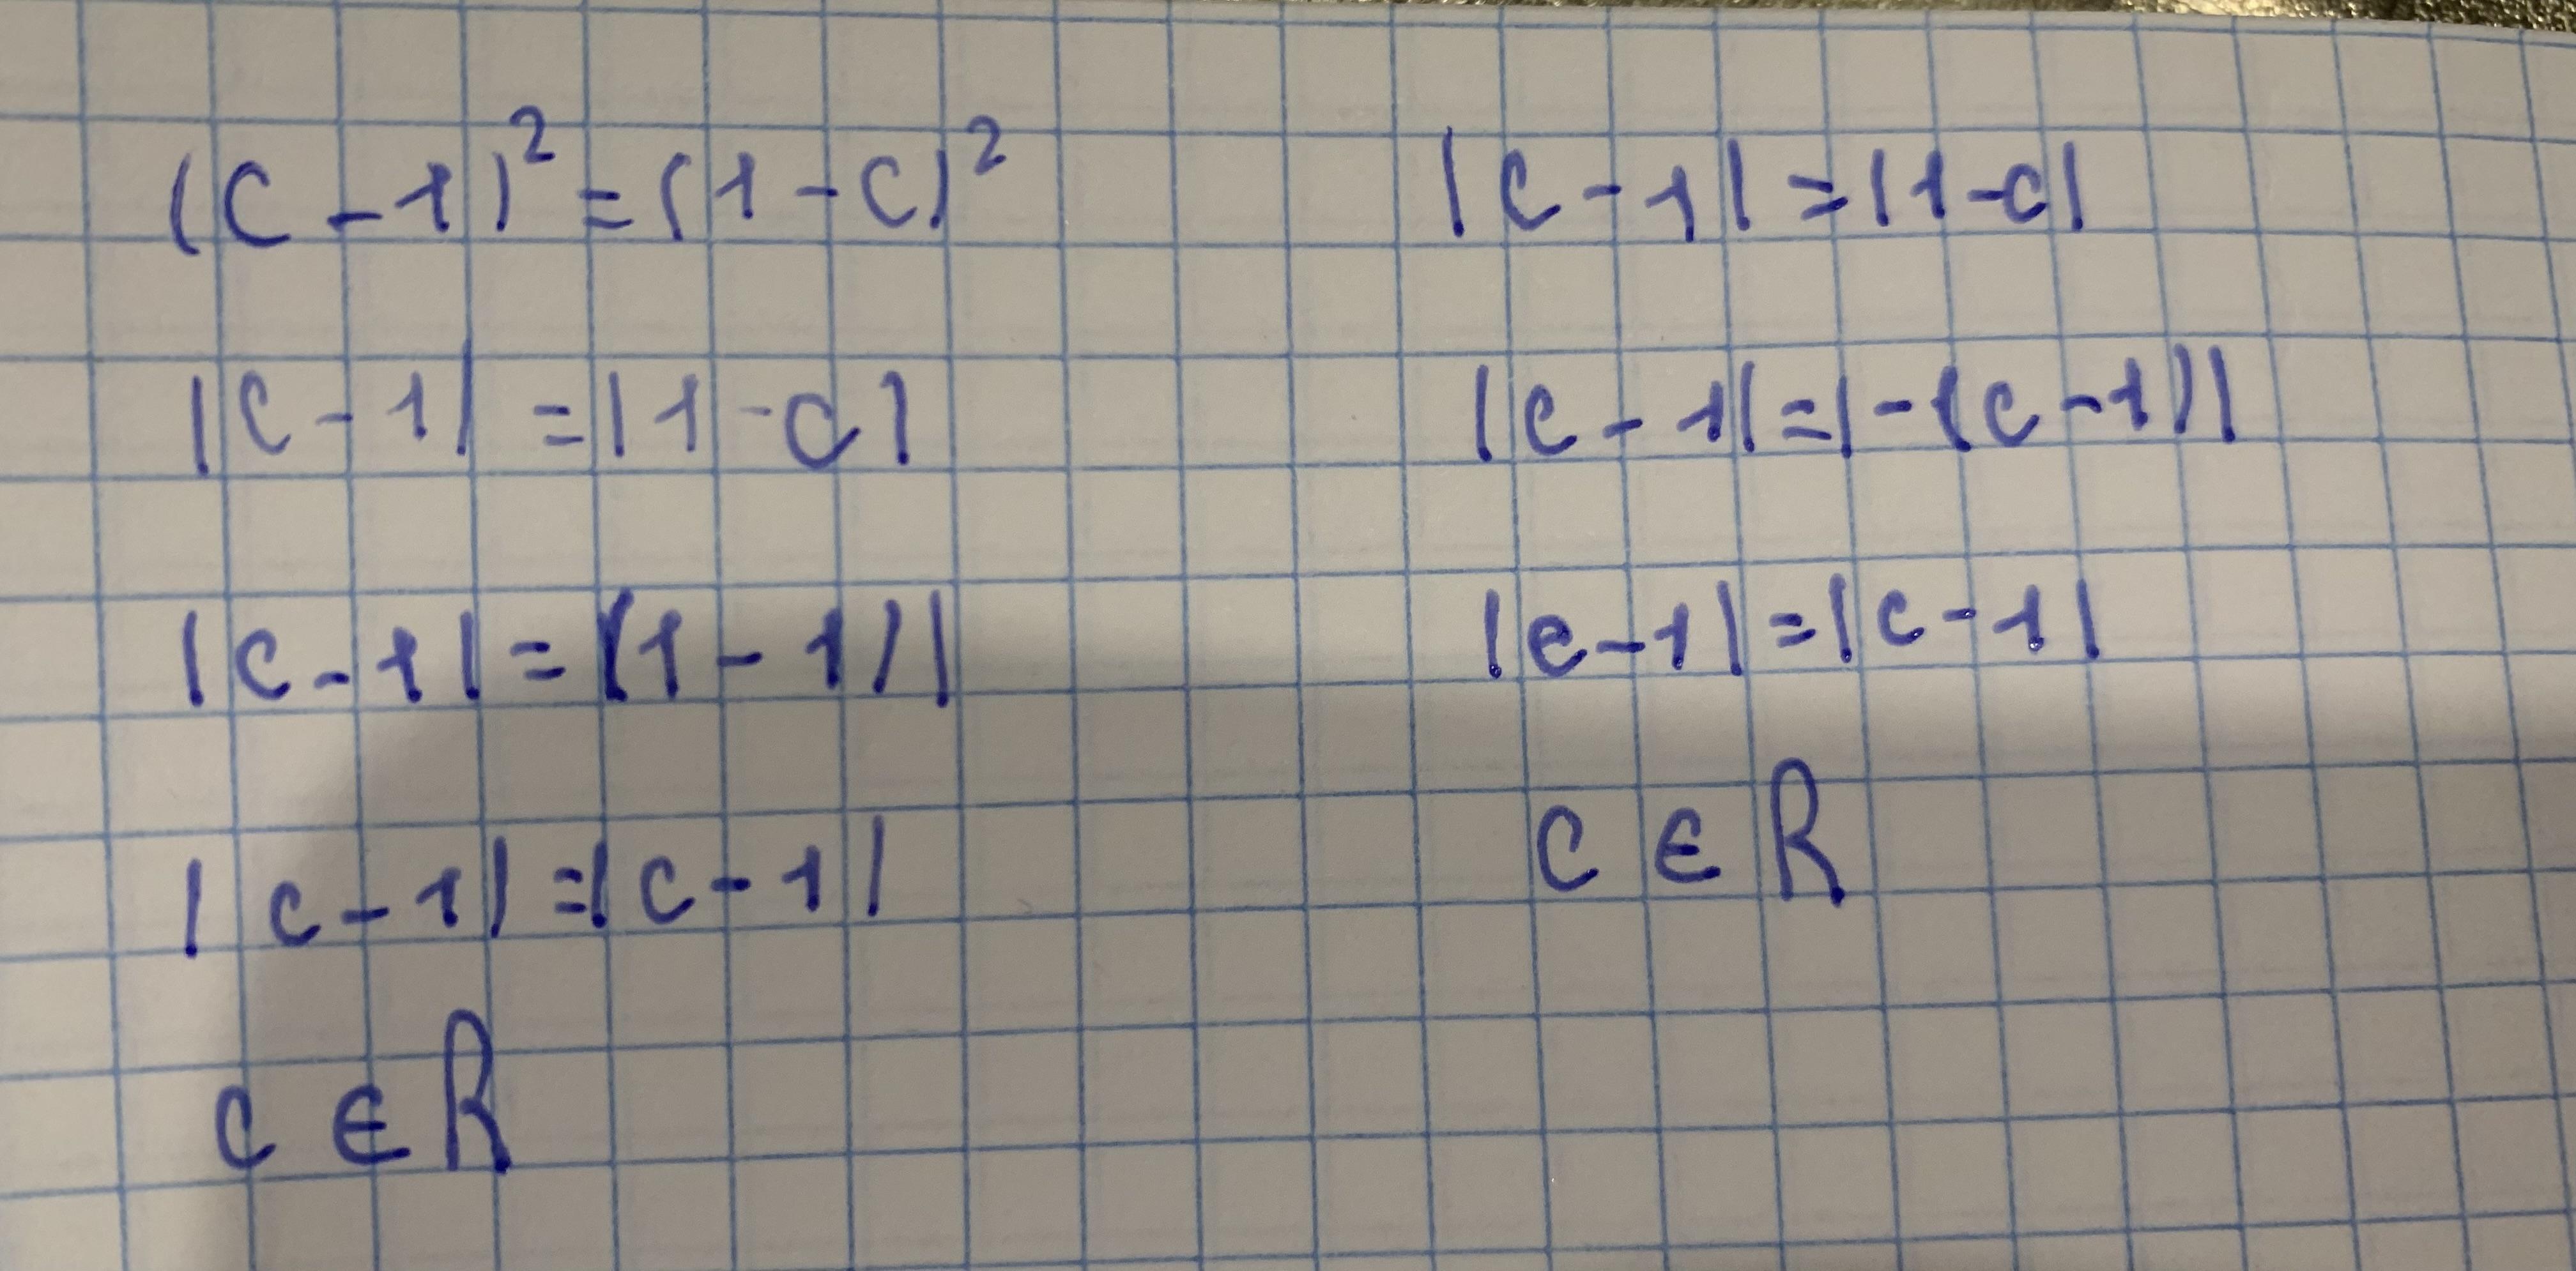 (c-1)² = (1-c)²
|c-1| = |1-c|
|c-1| = |(1-1)|
|c-1| = |c-1|
c ∈ R
|c-1| = |1-c|
|c-1| = |-(c-1)|
|c-1| = |c-1|
c ∈ R